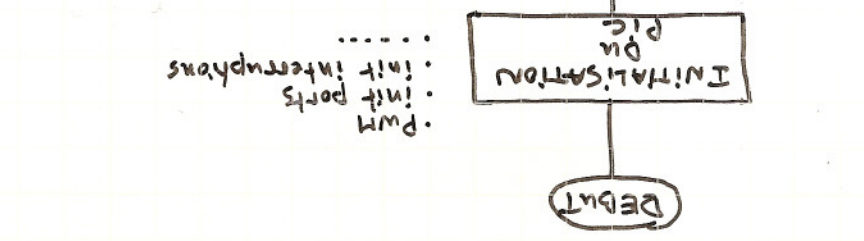 DEBUT
INITIALISATION
DU
PIC
. PWM
. init ports
. init interruptions
. .....